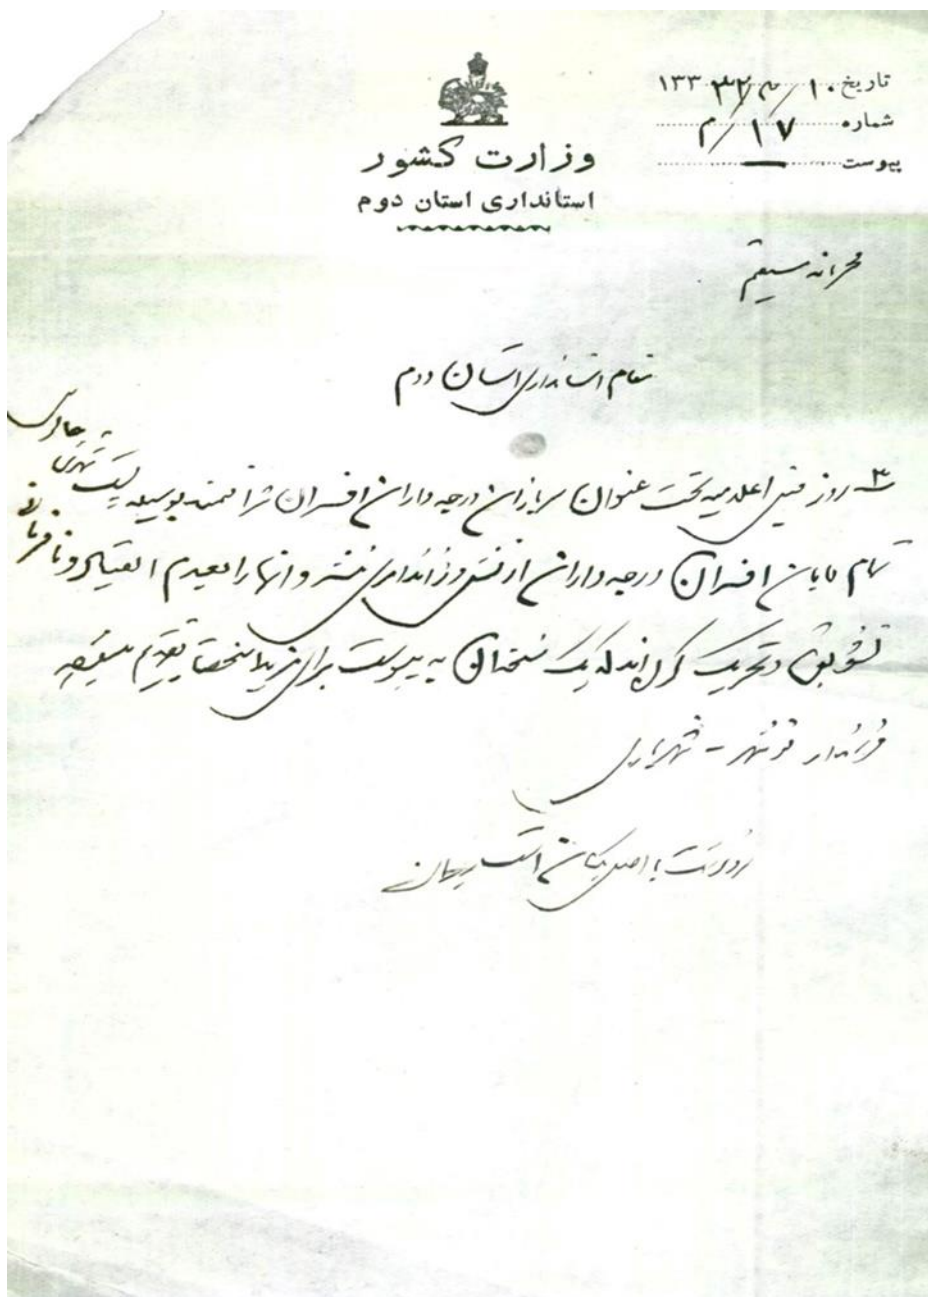 تاریخ ۱۰/۲/۳۲ ۱۳۳
شماره ۱۷/م
پیوست —
وزارت کشور
استانداری استان دوم
محرمانه مستقیم
مقام استانداری استان دوم
۳ روز قبل اعلامیه تحت عنوان سربازان درجه داران افسران شرافتمند بوسیله پست شهری چالوس
بنام افسران درجه داران ارتش و ژاندارمری منتشر و آنها را بعدم انقیاد و نافرمانی
تشویق و تحریک کرده‌اند که یک نسخه آن به پیوست برای مزید استحضار تقدیم میگردد
فرماندار نوشهر - شهریاری
رونوشت با اصل یکسان است